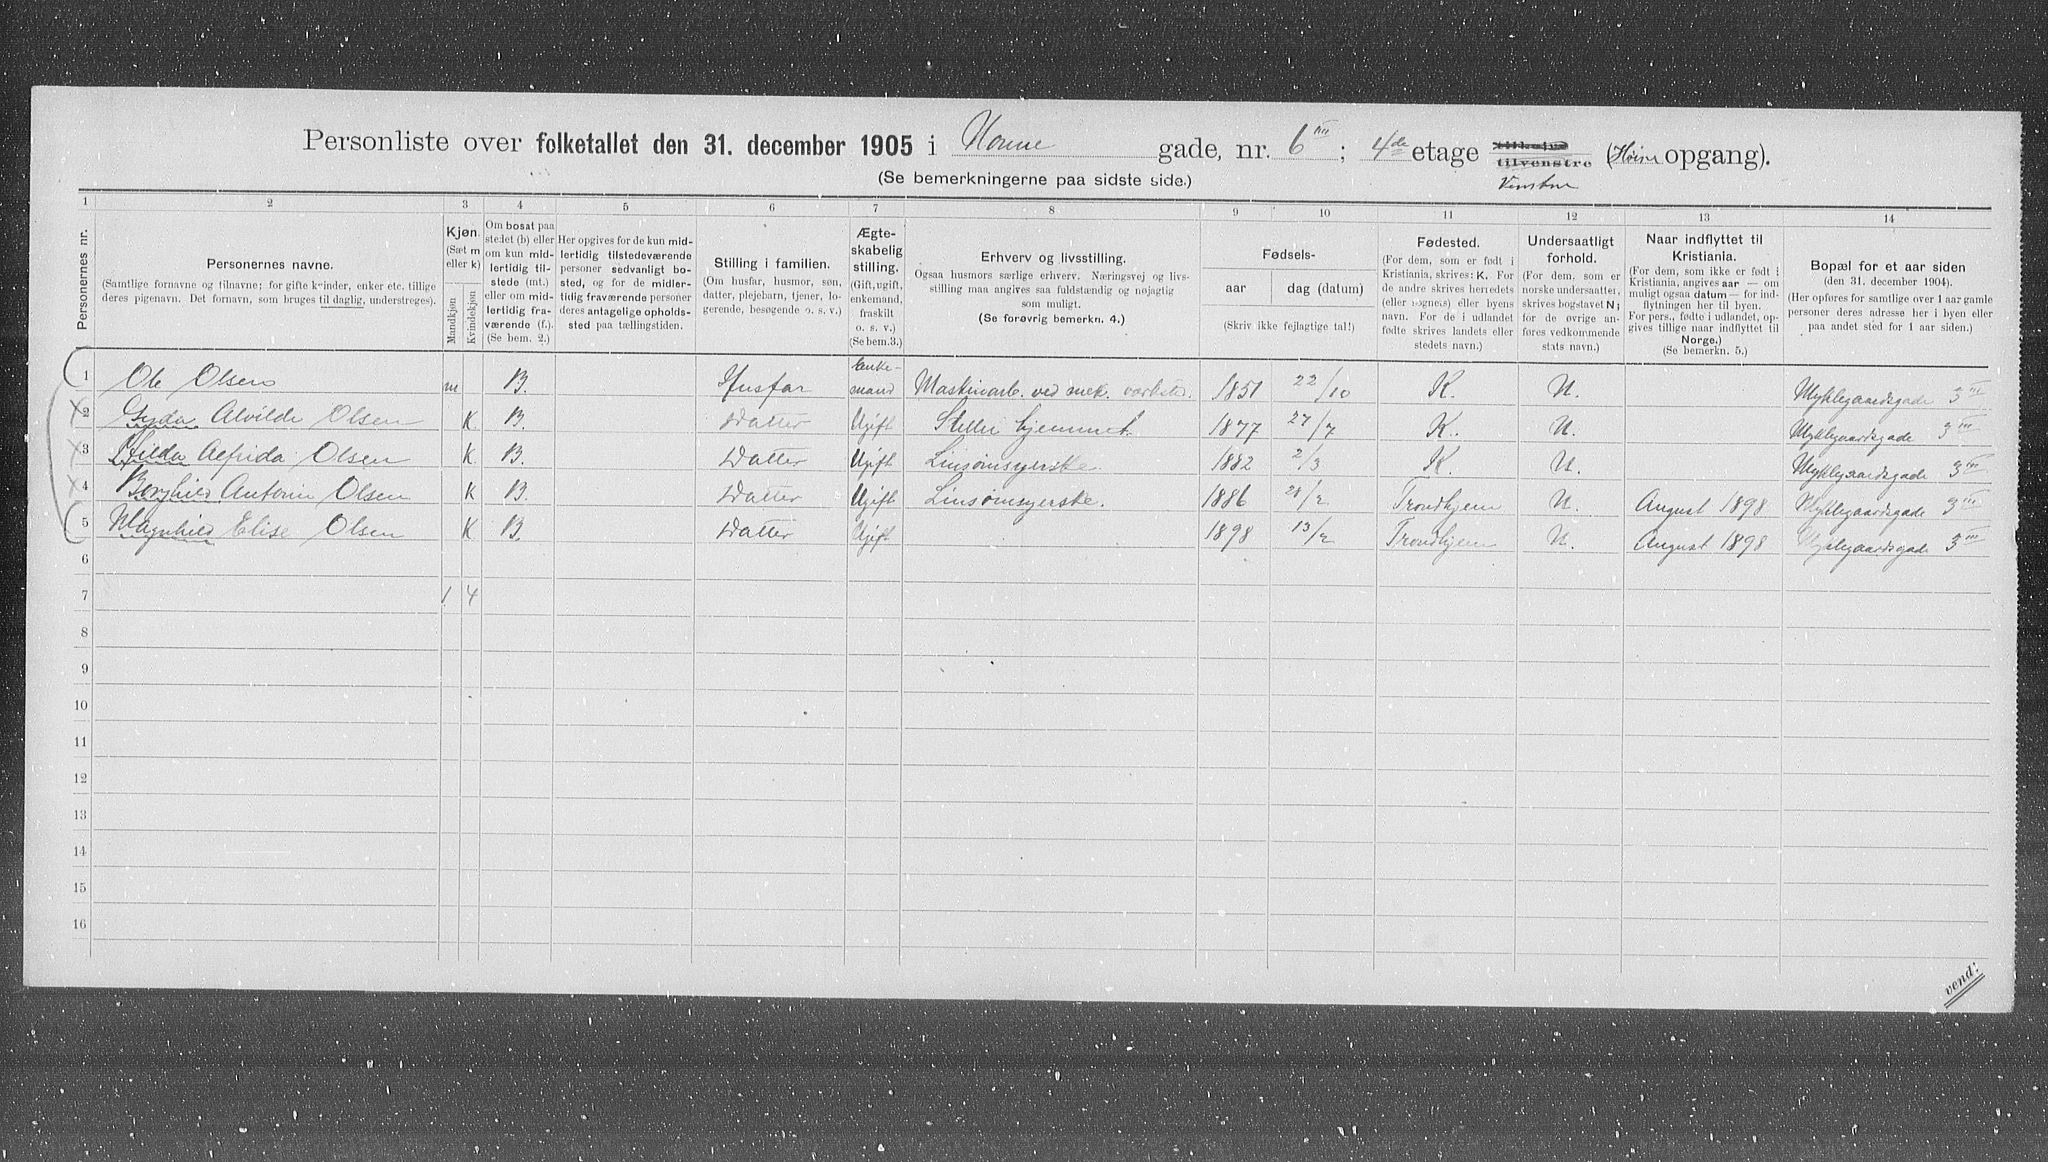 Personliste over folketallet den 31. december 1905 i Norme gade, nr. 6 III ; 4de etage tilhøjre (Høire opgang).
tilvenstre
(Se bemerkningerne paa sidste side.)
Venstre
1 2 3 4 5 6 7 8 9 10 11 12 13 14
Personernes nr.
Personernes navne.
(Samtlige fornavne og tilnavne; for gifte kvinder, enker etc. tillige
deres pigenavn. Det fornavn, som bruges til daglig, understreges).
Kjøn.
(Sæt m
eller k)
Mandkjøn
Kvindekjøn
Om bosat paa
stedet (b) eller
om kun mid-
lertidig til-
stede (mt.)
eller om mid-
lertidig fra-
værende (f.).
(Se bem. 2.)
Her opgives for de kun mid-
lertidig tilstedeværende
personer sedvanligt bo-
sted, og for de midler-
tidig fraværende personer
deres antagelige opholds-
sted paa tællingstiden.
Stilling i familien.
(Om husfar, husmor, søn,
datter, plejebarn, tjener, lo-
gerende, besøgende o. s. v.)
Ægte-
skabelig
stilling.
(Gift, ugift,
enkemand,
fraskilt
o. s. v.)
(Se bem.3.)
Erhverv og livsstilling.
Ogsaa husmors særlige erhverv. Næringsvej og livs-
stilling maa angives saa fuldstændig og nøjagtig
som muligt.
(Se forøvrig bemerkn. 4.)
Fødsels-
aar
dag (datum)
(Skriv ikke fejlagtige tal!)
Fødested.
(For dem, som er født i
Kristiania, skrives: K. For
de andre skrives herredets
(eller sognets) eller byens
navn. For de i udlandet
fødte skrives landets eller
stedets navn.)
Undersaatligt
forhold.
(For dem, som er
norske undersaatter,
skrives bogstavet N;
for de øvrige an-
føres vedkommende
stats navn.)
Naar indflyttet til
Kristiania.
(For dem, som ikke er født i
Kristiania, angives aar — om
muligt ogsaa datum — for ind-
flytningen her til byen.
For pers., fødte i udlandet, op-
gives tillige naar indflyttet til
Norge.)
(Se bemerkn. 5.)
Bopæl for et aar siden
(den 31. december 1904).
(Her opføres for samtlige over 1 aar gamle
personer deres adresse her i byen eller
paa andet sted for 1 aar siden.)
1 Ole Olsen m B. Husfar Enke-mand Maskinarb. ved mek. værksted. 1851 22/10 K. N. Myklegaardsgade 3 III
2 Gyda Alvilde Olsen K. B. Datter Ugift Steller hjemmet. 1877 27/7 K. N. Myklegaardsgade 3 III
3 Hilda Alfrida Olsen K B. Datter Ugift Linsømsyerske. 1882 2/3 K. N. Myklegaardsgade 3 III
4 Borghild Antonie Olsen K B. Datter Ugift Linsømsyerske. 1886 28/2 Trondhjem N. August 1898 Myklegaardsgade 3 III
5 Magnhild Elise Olsen K B. Datter Ugift 1898 13/2 Trondhjem N. August 1898 Myklegaardsgade 3 III
6
7 1 4
8
9
10
11
12
13
14
15
16
vend: